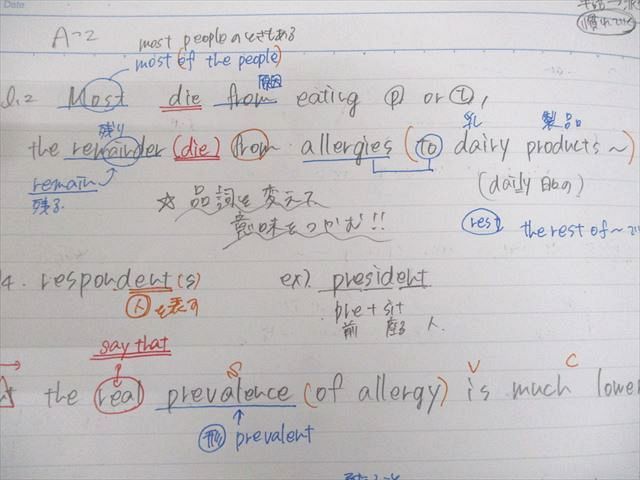 Date
慣れていく
A-2
most peopleのときもある
most (of the people)
原因
l.2 Most die from eating Ⓟ or Ⓣ,
残り 乳 製品
the remainder (die) from allergies (to dairy products ~)
remain
残る
(daily 日々の)
☆ 品詞を変えて
意味をつかむ!!
rest the rest of ~
4. respondent(s) ex) president
人 を表す
pre + sit
前 座る 人
say that
S V C
the real prevalence (of allergy) is much lower
形 prevalent